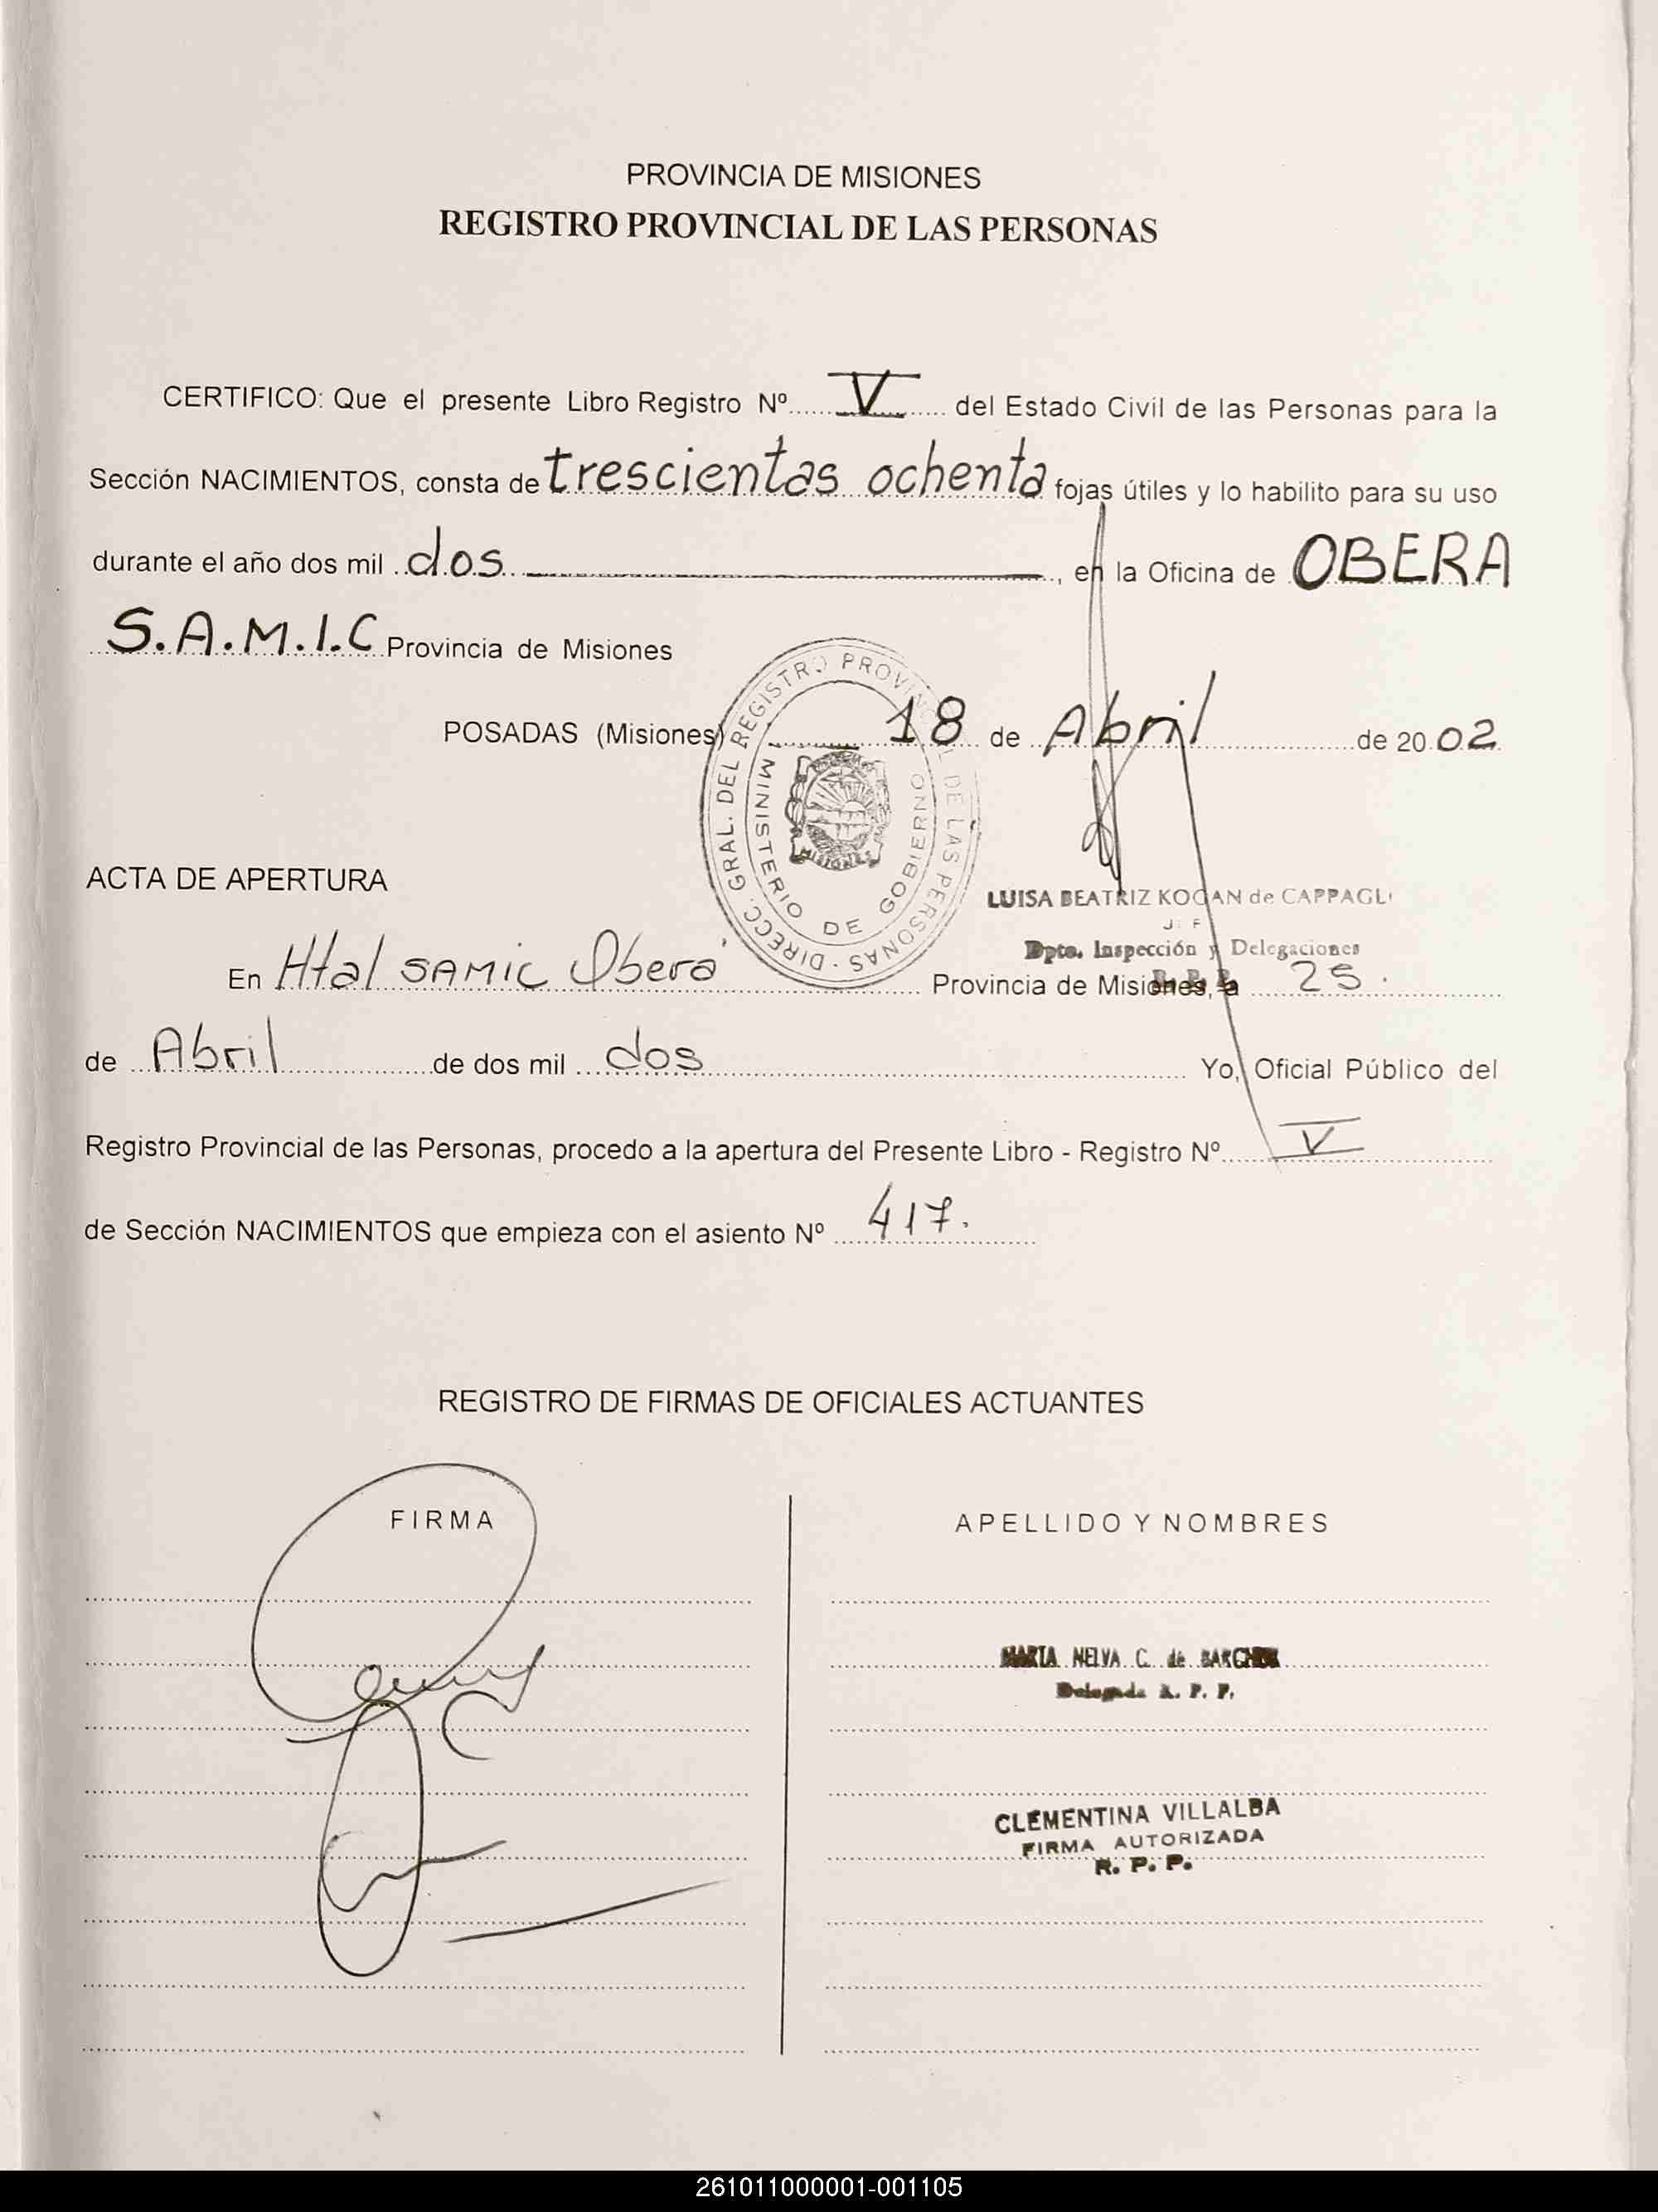 PROVINCIA DE MISIONES
REGISTRO PROVINCIAL DE LAS PERSONAS
CERTIFICO: Que el presente Libro Registro Nº V del Estado Civil de las Personas para la
Sección NACIMIENTOS, consta de trescientas ochenta fojas útiles y lo habilito para su uso
durante el año dos mil dos, en la Oficina de OBERA
S.A.M.I.C Provincia de Misiones
POSADAS (Misiones) 18 de Abril de 2002
DIRECC. GRAL. DEL REGISTRO PROVINCIAL DE LAS PERSONAS
MINISTERIO DE GOBIERNO
MISIONES
ACTA DE APERTURA
LUISA BEATRIZ KOGAN de CAPPAGLI
Dpto. Inspección y Delegaciones
En Htal SAMIC Oberá Provincia de Misiones, a 25.
de Abril de dos mil dos Yo, Oficial Público del
Registro Provincial de las Personas, procedo a la apertura del Presente Libro - Registro Nº V
de Sección NACIMIENTOS que empieza con el asiento Nº 417.
REGISTRO DE FIRMAS DE OFICIALES ACTUANTES
FIRMA
APELLIDO Y NOMBRES
MARIA NELVA C. de
Delegada R. P. P.
CLEMENTINA VILLALBA
FIRMA AUTORIZADA
R. P. P.
261011000001-001105